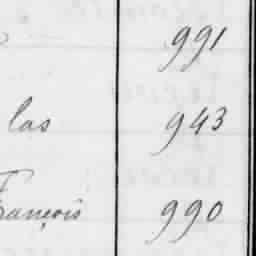 991
las 943
rançois 990